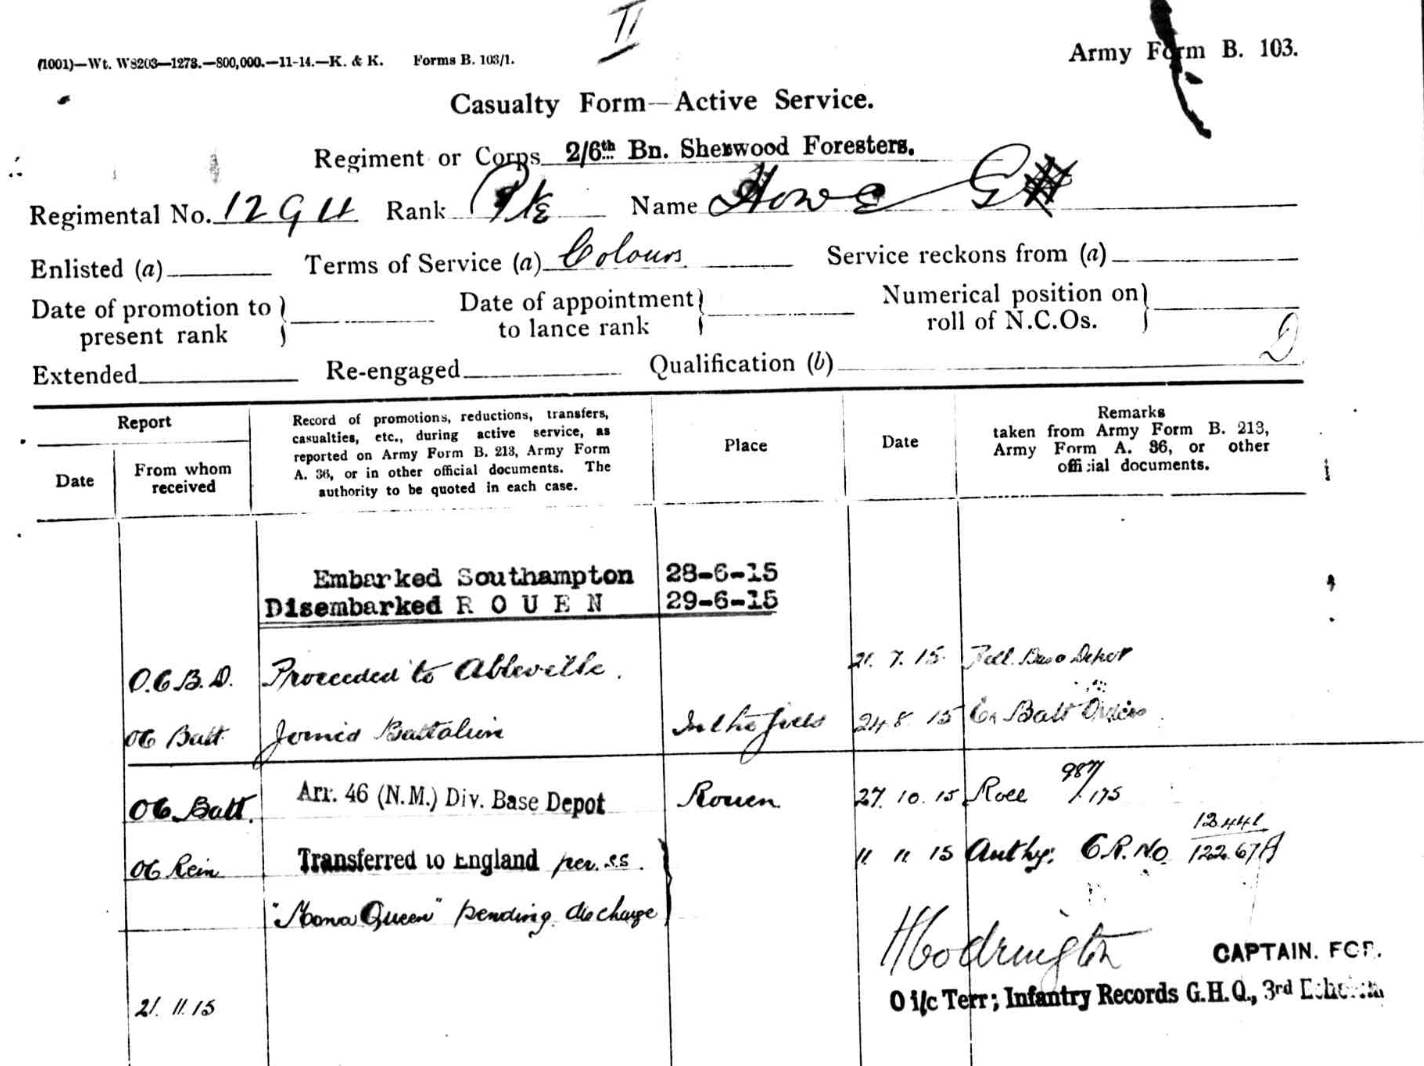 II
(1001)—Wt. W8203—1273.—800,000.—11-14.—K. & K. Forms B. 103/1.
Army Form B. 103.
Casualty Form—Active Service.
Regiment or Corps 2/6th Bn. Sherwood Foresters.
Regimental No. Rank Pte Name Howe G
Enlisted (a) Terms of Service (a) Colours Service reckons from (a)
Date of promotion to present rank
Date of appointment to lance rank
Numerical position on roll of N.C.Os.
D
Extended Re-engaged Qualification (b)
Report
Date
From whom received
Record of promotions, reductions, transfers,
casualties, etc., during active service, as
reported on Army Form B. 213, Army Form
A. 36, or in other official documents. The
authority to be quoted in each case.
Place
Date
Remarks
taken from Army Form B. 213,
Army Form A. 36, or other
official documents.
Embarked Southampton 28-6-15
Disembarked ROUEN 29-6-15
O.C.B.D. Proceeded to Abbeville. 21. 7. 15 Base Depot
OC Batt Joined Battalion In the field 24 8 15 Batt
OC Batt. Arr. 46 (N.M.) Div. Base Depot Rouen 27. 10. 15 Roll 987/175
OC Rein Transferred to England per. SS. 11 11 15 Authy: C.R. No 12441 12267A
"Mona Queen" pending discharge
HCodrington CAPTAIN. FOR.
O i/c Terr; Infantry Records G.H.Q., 3rd Echelon
21. 11. 15